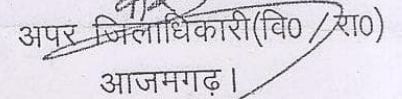 अपर जिलाधिकारी(वि0/रा0)
आजमगढ़।